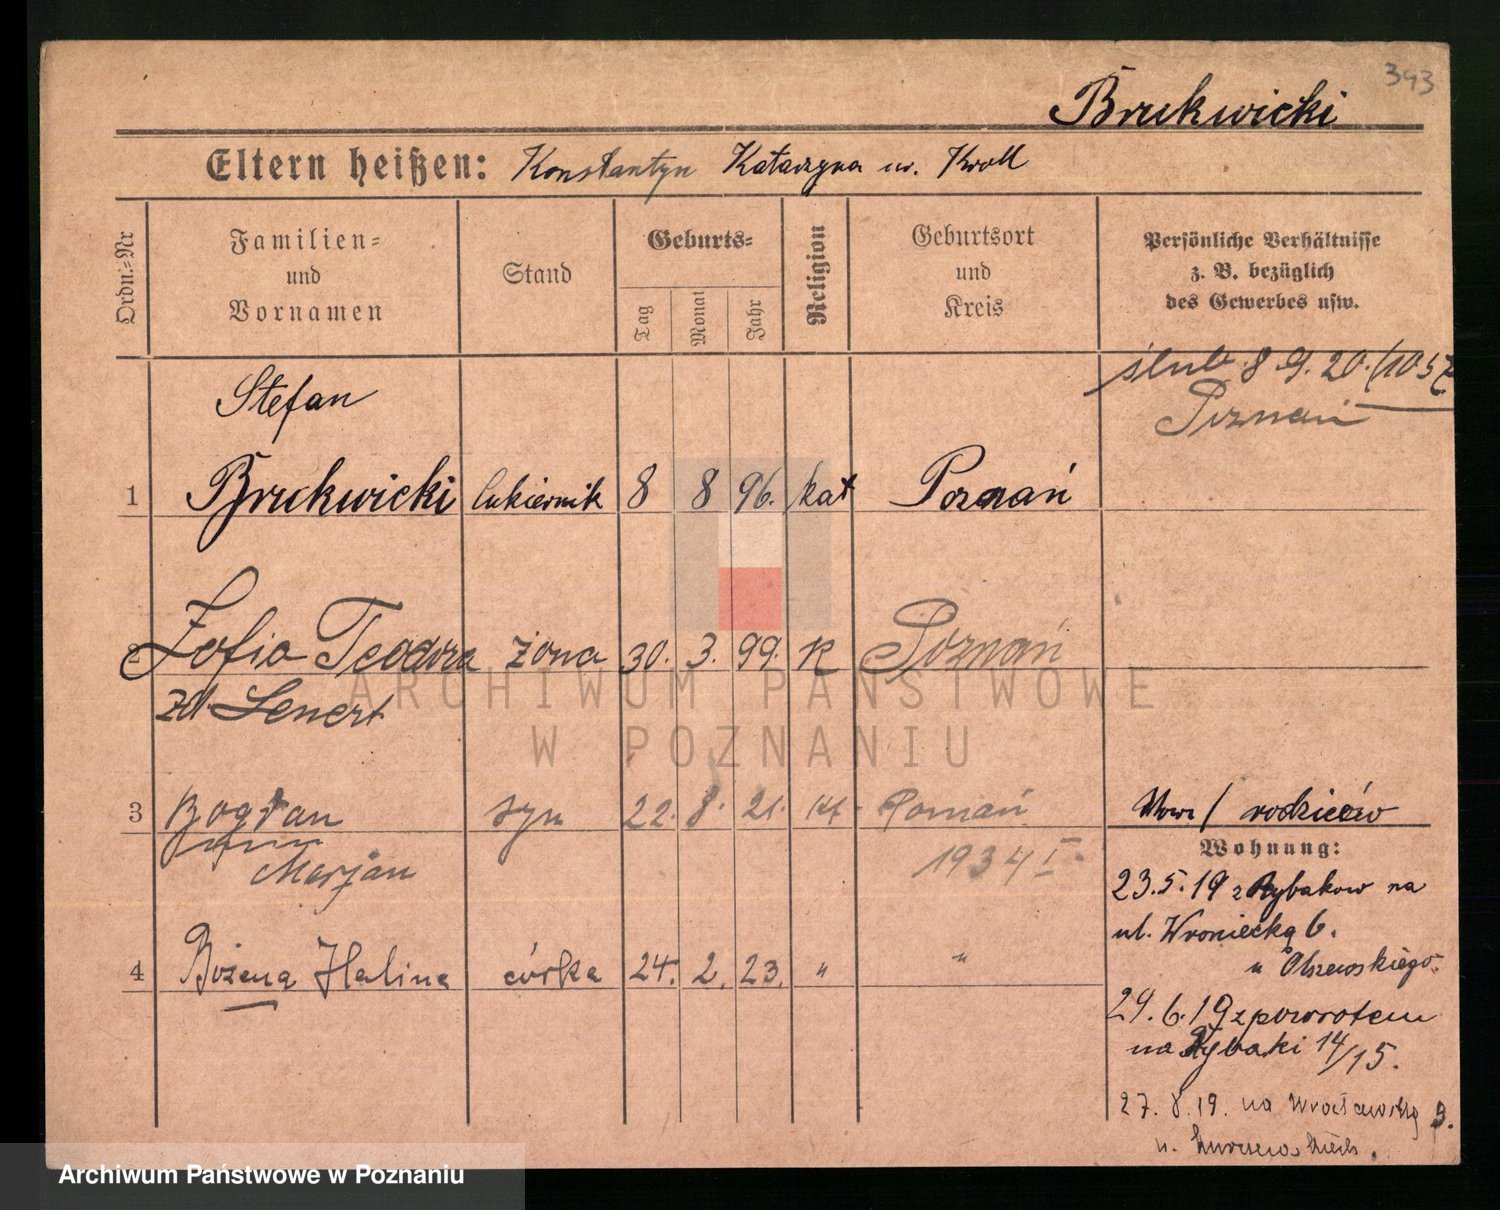 393
Brukwicki
Eltern heißen: Konstantyn Katarzyna ur. Kroll
Ordn.-Nr
Familien- und Vornamen
Stand
Geburts-
Tag
Monat
Jahr
Religion
Geburtsort und Kreis
Persönliche Verhältnisse
z. B. bezüglich
des Gewerbes usw.
ślub 8.9.20. (1057
Poznań
Stefan
1 Brukwicki cukiernik 8 8 96. kat Poznań
2 Zofia Teodora żona 30. 3. 99. K Poznań
zd Lenert
3 Bogdan syn 22. 8. 21. kt. Poznań
Marjan 1934 I
rodziców
Wohnung:
23.5.19 z Rybakow na
ul. Wroniecką 6.
u Olszewskiego.
4 Bożena Halina córka 24. 2. 23. " "
29.6.19 z powrotem
na Rybaki 14/15.
27.8.19. na Wrocławską 3.
u.
ARCHIWUM PAŃSTWOWE
W POZNANIU
Archiwum Państwowe w Poznaniu